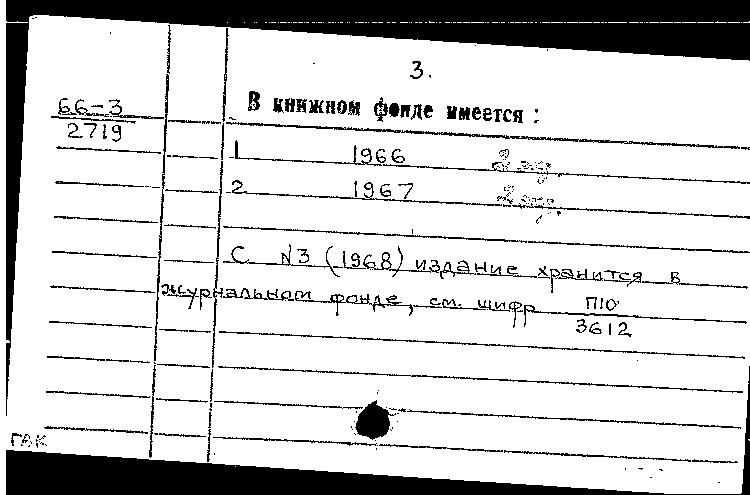 3.
66-3
2719
В книжном фонде имеется:
1 1966 2 эк.
2 1967 2 эк.
С №3 (1968) издание хранится в
журнальном фонде, см. шифр П10
3612
ГВК